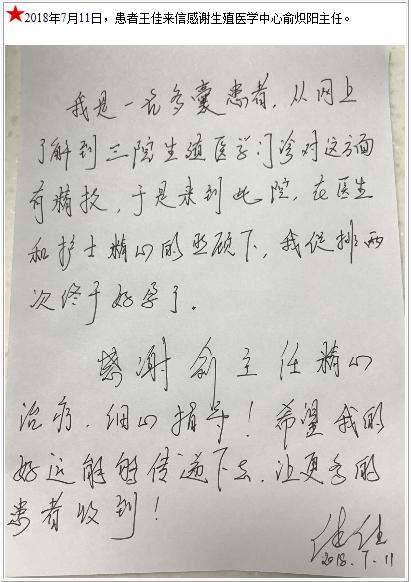 ★2018年7月11日，患者王佳来信感谢生殖医学中心俞炽阳主任。
我是一名多囊患者，从网上
了解到三院生殖医学门诊对这方面
有精技，于是来到此院，在医生
和护士精心的照顾下，我促排两
次终于好孕了。
感谢俞主任精心
治疗，细心指导！希望我的
好运能够传递下去，让更多的
患者收到！
佳佳
2018.7.11